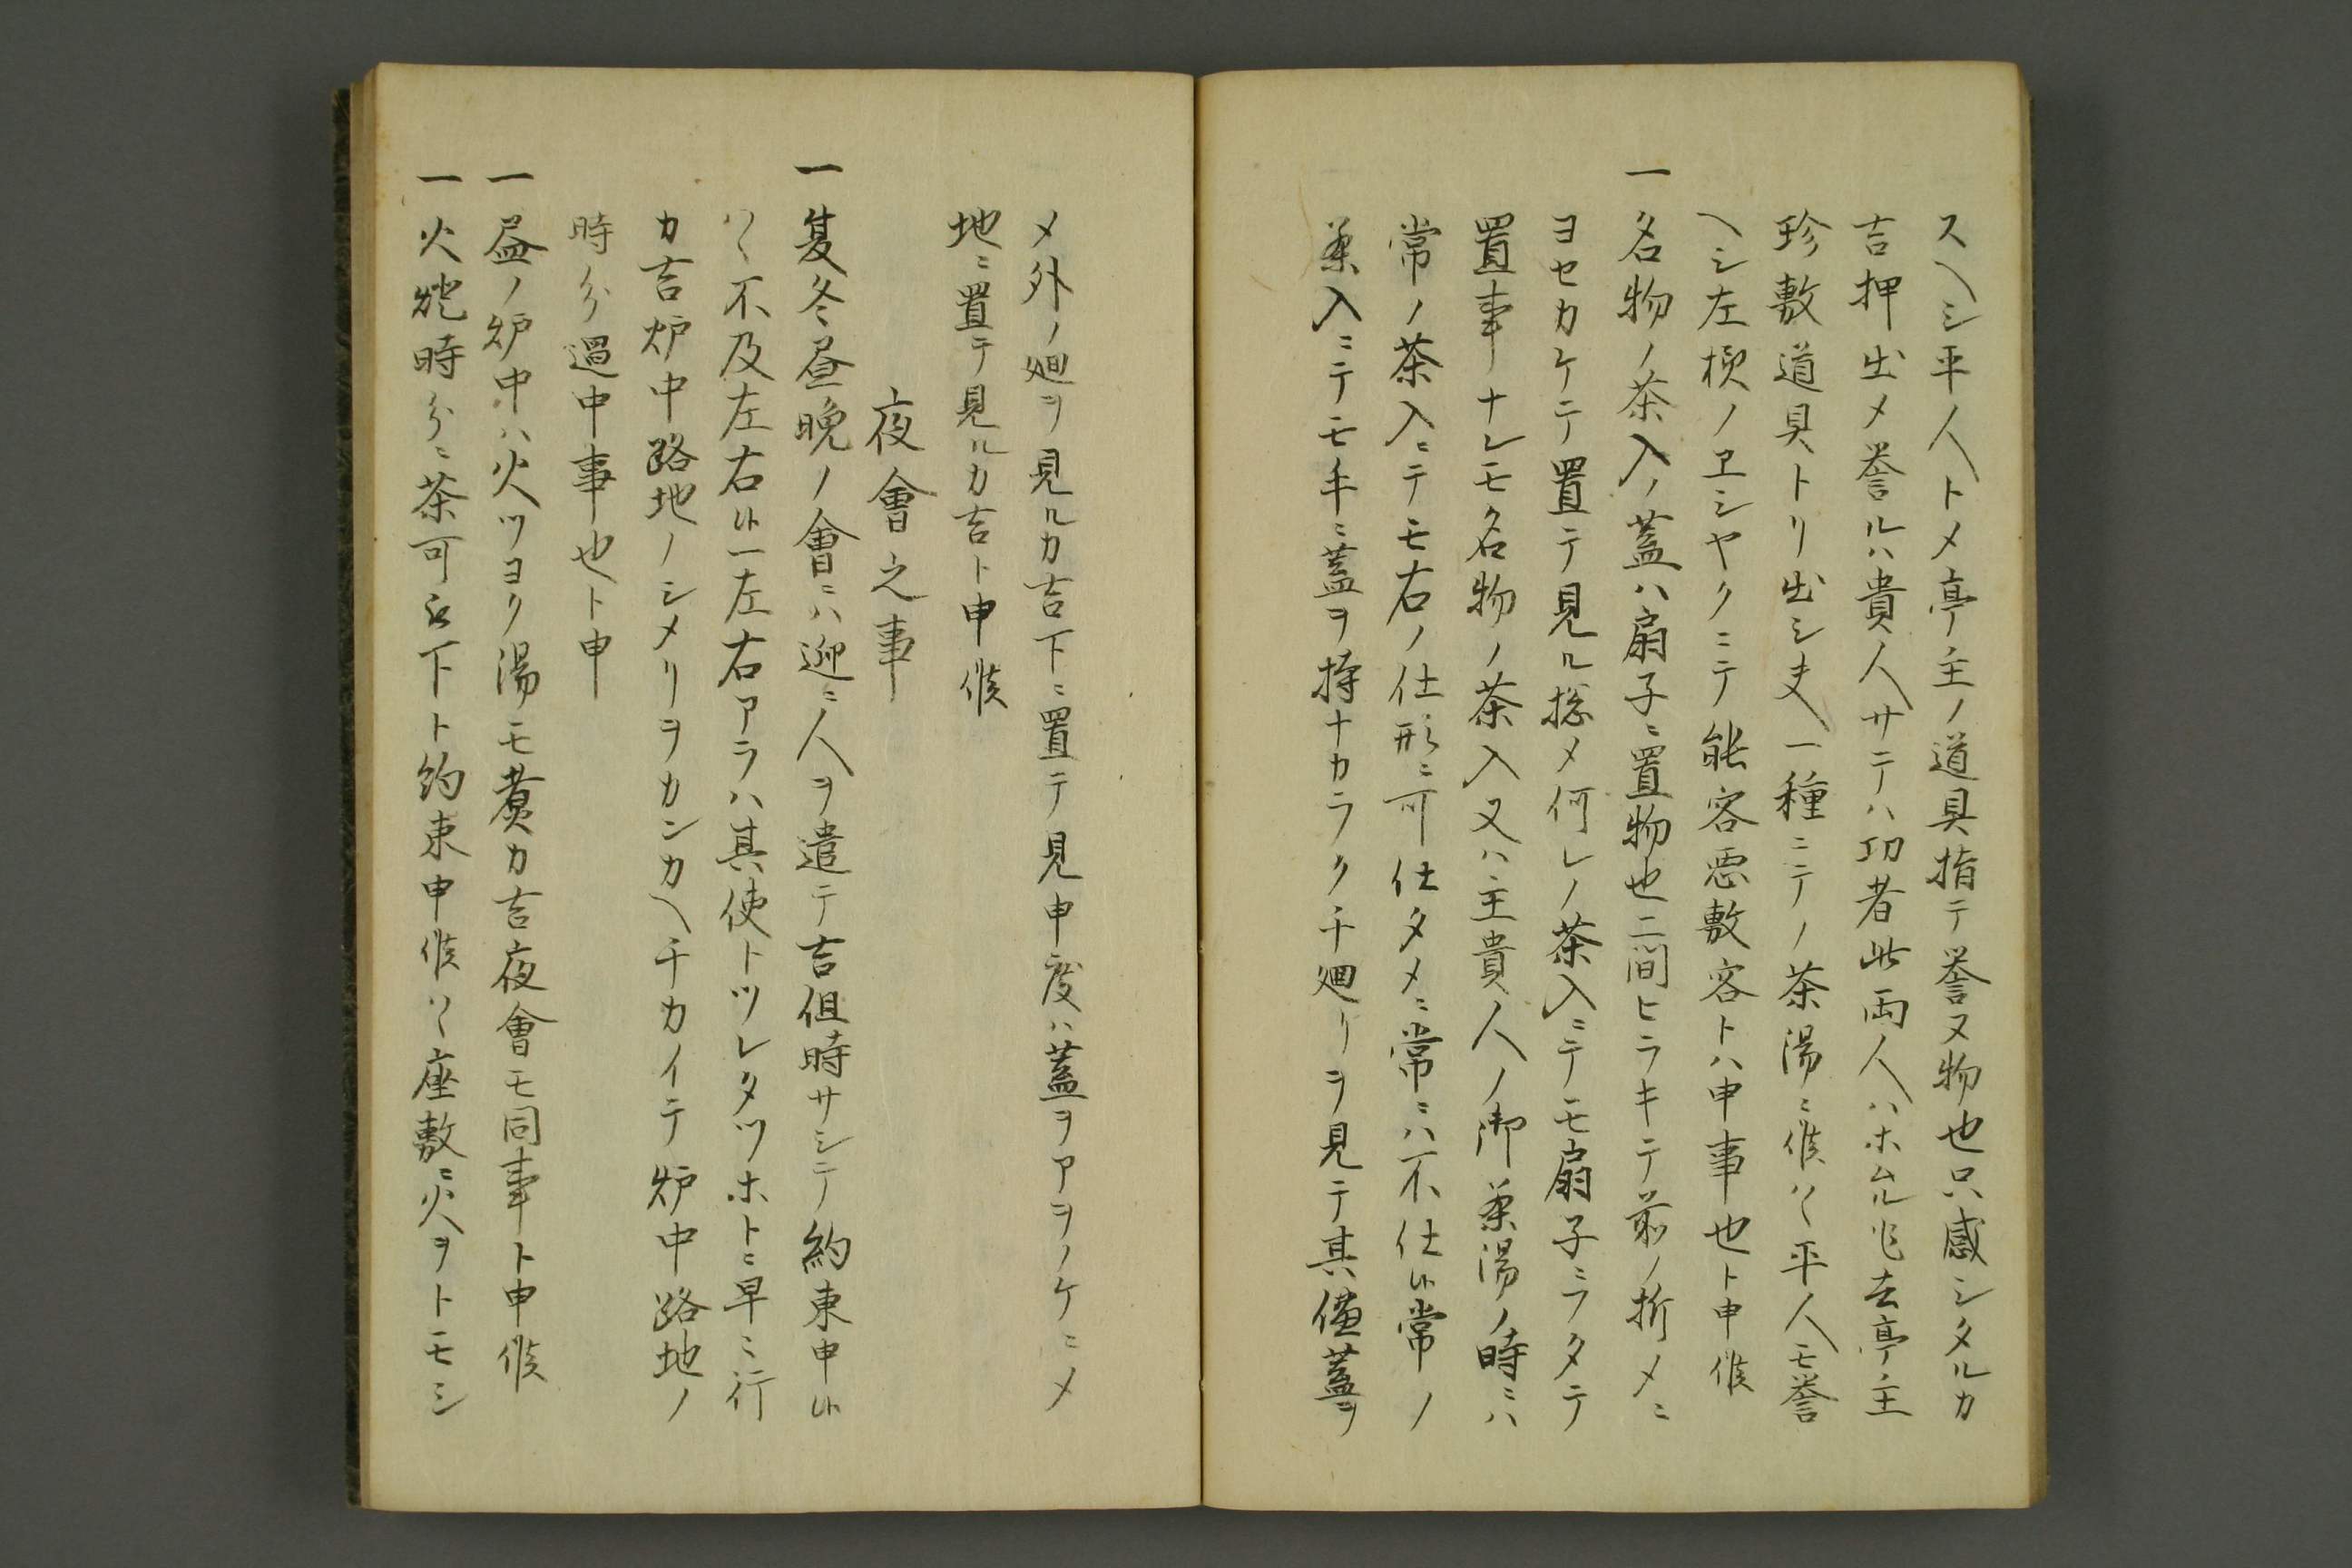 スヘシ平人トメ亭主ノ道具指テ誉ヌ物也只感シタルカ
吉押出メ誉ルハ貴人サテハ功者此両人ハホムル也去亭主
珍敷道具トリ出シ又一種ニテノ茶湯ニ候ハヽ平人モ誉
ヘシ左様ノヱシヤクニテ能客悪敷客トハ申事也ト申候
一名物ノ茶入ノ蓋ハ扇子ニ置物也二間ヒラキテ前ノ折メニ
ヨセカケテ置テ見ル惣メ何レノ茶入ニテモ扇子ニフタテ
置事ナレモ名物ノ茶入又ハ主貴人ノ御茶湯ノ時ニハ
常ノ茶入ニテモ右ノ仕形ニ可仕タメニ常ニハ不仕候常ノ
茶入ニテモ手ニ蓋ヲ持ナカラクチ廻リヲ見テ其儘蓋ヲ
メ外ノ廻ヲ見ルカ吉下ニ置テ見申度ハ蓋ヲアヲノケニメ
地ニ置テ見ルカ吉ト申候
夜會之事
一夏冬昼晩ノ會ニハ迎ニ人ヲ遣テ吉但時サシテ約束申候
ハヽ不及左右候一左右アラハ其使トツレタツホトニ早ニ行
カ吉炉中路地ノシメリヲカンカヘチカイテ炉中路地ノ
時分過申事也ト申
一昼ノ炉中ハ火ツヨク湯モ煮カ吉夜會モ同事ト申候
一火燈時分ニ茶可被下ト約束申候ハヽ座敷ニ火ヲトモシ